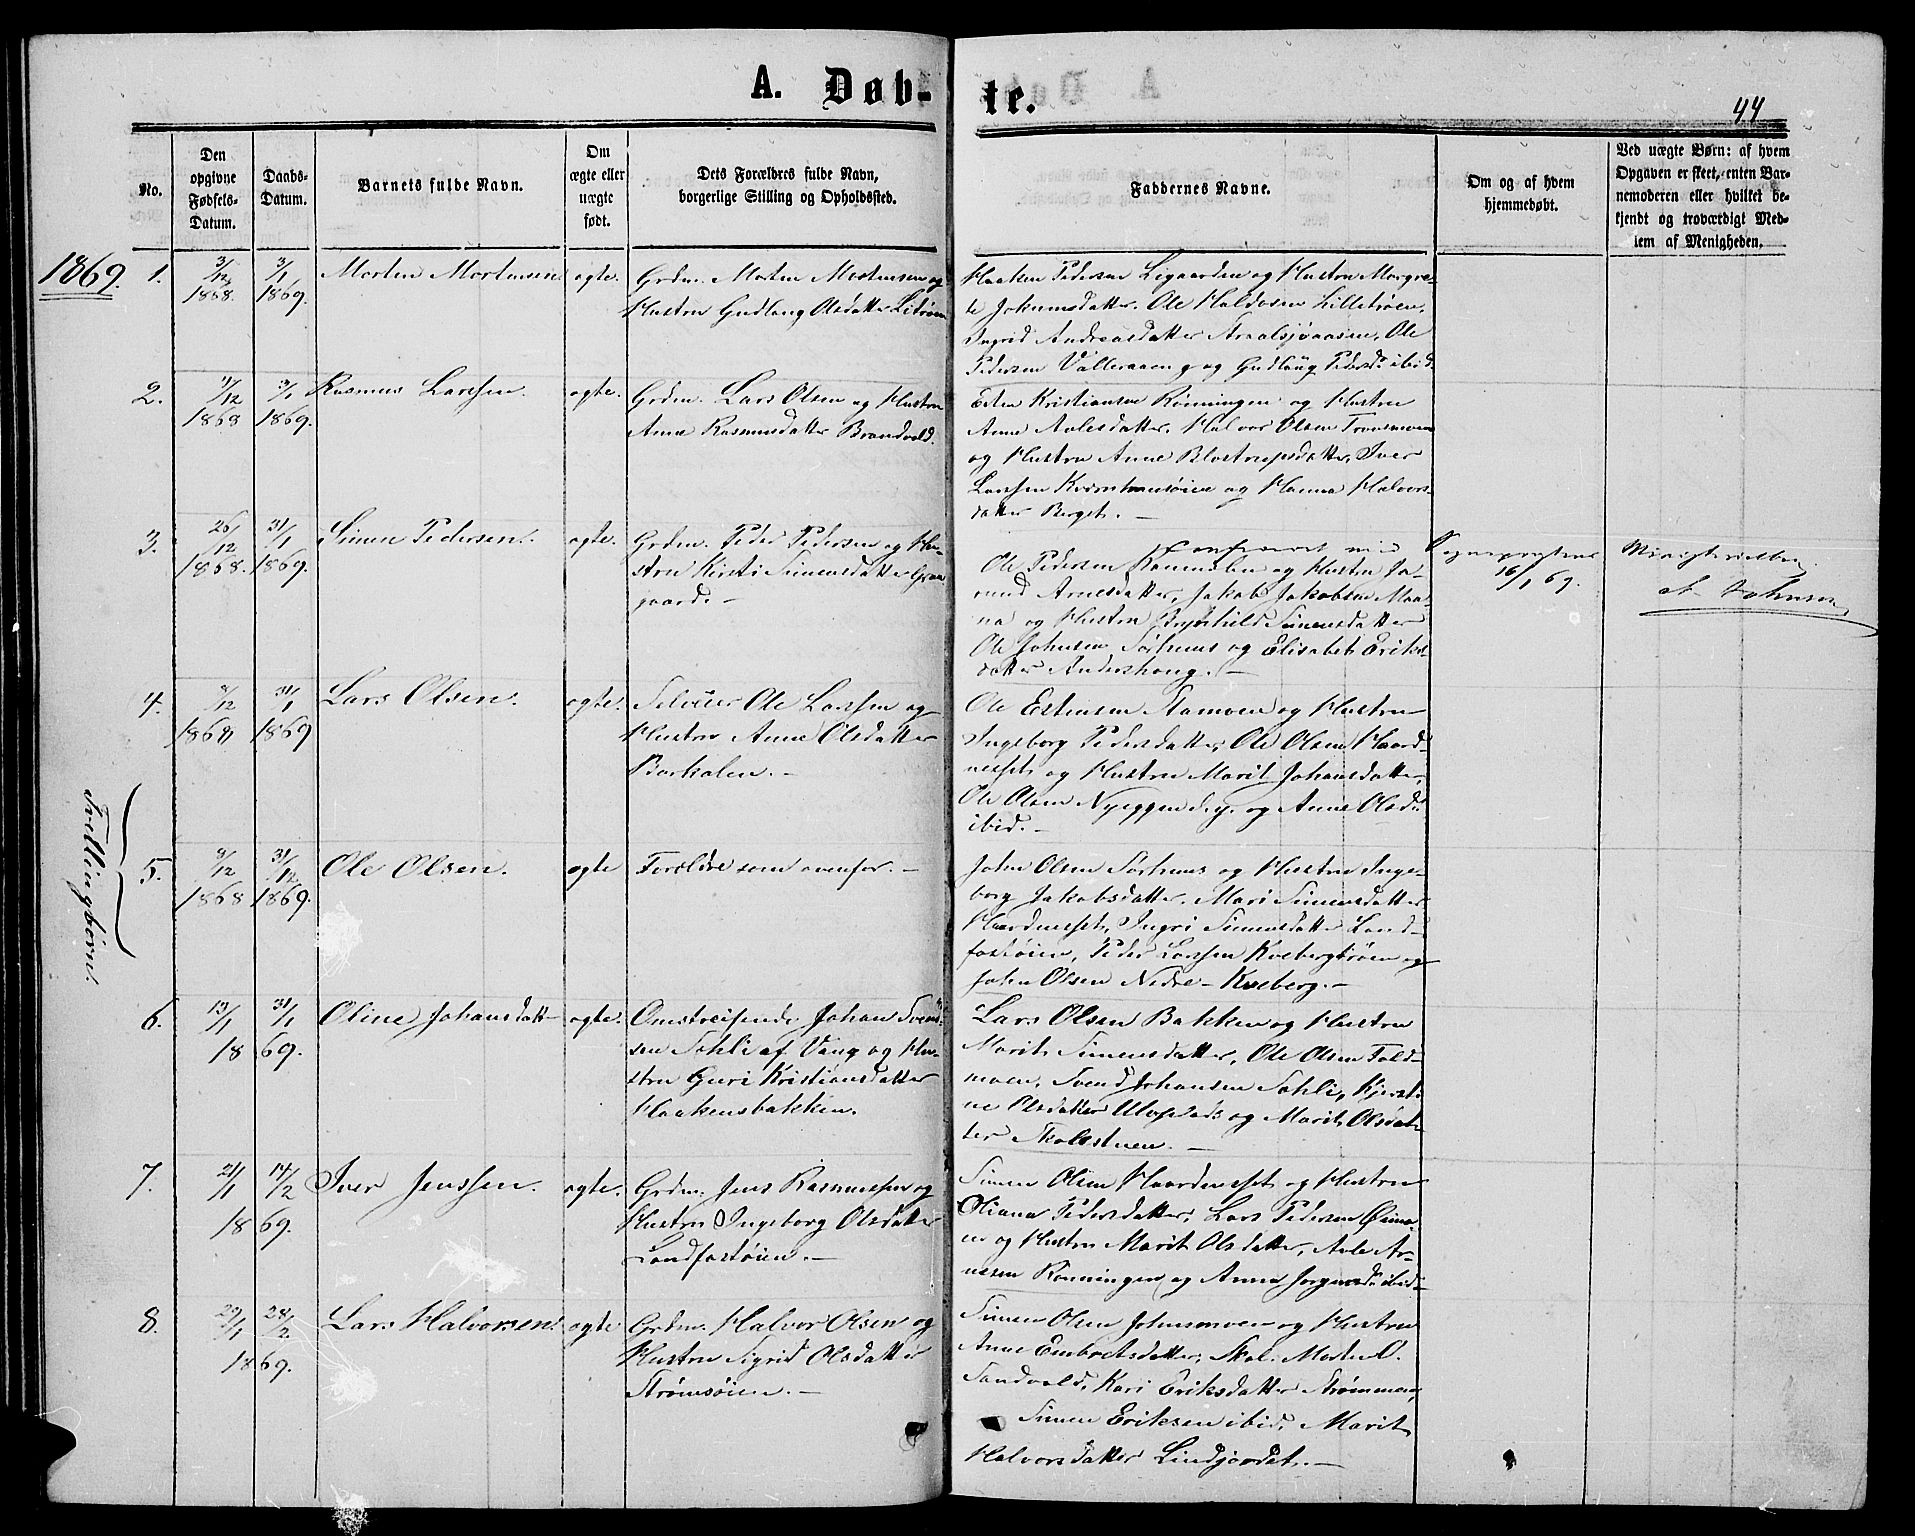 A. Døb-
te.
44
No.
Den
opgivne
Fødsels-
Datum.
Daabs-
Datum.
Barnets fulde Navn.
Om
ægte eller
uægte
født.
Dets Forældres fulde Navn,
borgerlige Stilling og Opholdssted.
Faddernes Navne.
Om og af hvem
hjemmedøbt.
Ved uægte Børn: af hvem
Opgaven er skeet, enten Bar-
nemoderen eller hvilket be-
kjendt og troværdigt Med-
lem af Menigheden.
1869.
1.
3/12
1868.
3/1
1869.
Morten Mortensen
ægte.
Grdm. Morten Mortensen og
Hustru Gudlaug Olsdatter
Haaken Pedersen Ligaarden og Hustru Margre-
te Jokumsdatter. Ole Haldosen Lilletrøen,
Ingrid Andreasdatter Ole
Pedersen og Gudlaug Pedersd. ibid.
2.
/12
1868
3/1
1869.
Rasmus Larssen.
ægte.
Grdm. Lars Olsen og Hustru
Anne Rasmusdatter Brandvold.
Esten Kristiansen Rønningen og Hustru
Anne Avlesdatter. Halvor Olsen
og Hustru Anne Iver
Larssen og Hanna Halvors-
datter Berget. –
3.
26/12
1868.
31/1
1869.
Simen Pedersen.
ægte.
Grdm. Peder Pedersen og Hu-
stru Kirsti Simensdatter
gaard. –
Ole Pedersen og Hustru Jo-
rund Arnesdatter, Jakob Jakobsen Moe-
na og Hustru Brynhild Simensdatter
Ole Johnsen Sørhuus og Elisabet Eriks-
datter Andershaug. –
Confereret med
16/1 69.
Ministerialbog.
4.
8/12
1868
31/1
1869
Lars Olsen.
ægte.
Selveier Ole Larssen og
Hustru Anne Olsdatter
Borkalen. –
Ole Estensen Stamoen og Hustru
Ingeborg Pedersdatter, Ole Olsen Haard-
nesset og Hustru Marit Johansdatter,
Ole Olsen Nyeggen og Anne Olsd.
ibid. –
Tvillingbørn.
5.
8/12
1868
31/12
1869.
Ole Olsen.
ægte
Forældre som ovenfor. –
John Olsen Sørhuus og Hustru Inge-
borg Jakobsdatter. Mari Simensdatter
Haardnesset, Ingri Simensdatter Land-
fastøien, Peder Larssen Kvebergtrøen og
John Olsen Nedre-Kveberg. –
6.
13/1
18
31/1
69.
Oline Johansdatt-
ægte.
Omstreifende Johan Svend-
sen Sohli af Vang og Hu-
stru Guri Kristiansdatter
Haakensbakken.
Lars Olsen Bakken og Hustru
Marit Simensdatter, Ole Olsen Fald-
moen, Svend Johansen Sohli, Kjersti-
ne Olsdatter og Marit Olsdat-
ter Skolestuen. –
7.
21/1
18
14/2
69.
Iver Jenssen.
ægte.
Grdm. Jens Rasmussen og
Hustru Ingeborg Olsdatter
Landfastøien. –
Simen Olsen Haardnesset og Hustru
Oliana Pedersdatter, Lars Pedersen Øimo-
en og Hustru Marit Olsdatter, Avle Ar-
nesen Rønningen og Anne Jørgensd. ibid.
8.
29/1
18
28/2
69.
Lars Halvorsen.
ægte
Grdm. Halvor Olsen og
Hustru Sigrid Olsdatter
Strømsøien. –
Simen Olsen Johnsmoen og Hustru
Anne Embretsdatter, Skol. Morten O.
Sandvold, Kari Eriksdatter Strømmen,
Simen Eriksen ibid, Marit
Halvorsdatter Lindjordet. –